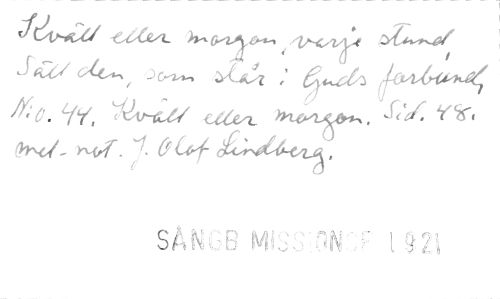 Kväll eller morgon, varje stund,
Säll den, som står i Guds förbund,
N:o. 44. Kväll eller morgon. Sid. 48.
mel. not. J. Olof Lindberg.
SÅNGB MISSIONSF 1921